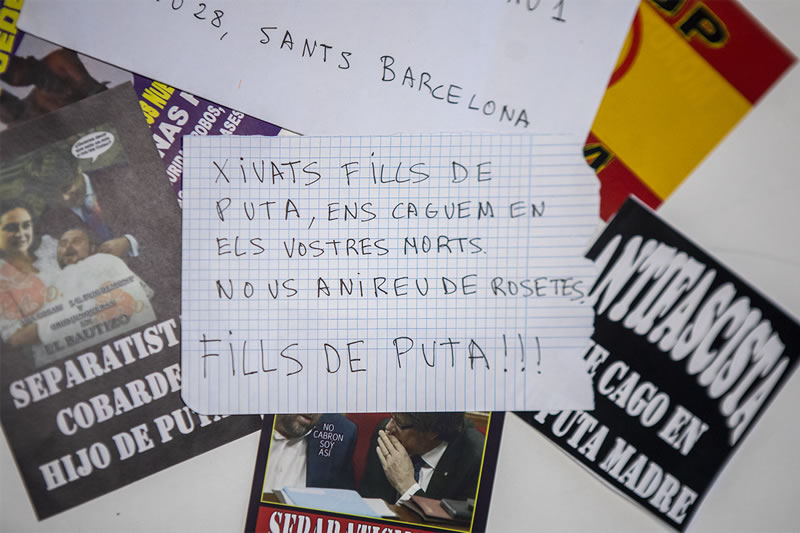 28, SANTS BARCELONA
XIVATS FILLS DE
PUTA, ENS CAGUEM EN
ELS VOSTRES MORTS.
NO US ANIREU DE ROSETES
FILLS DE PUTA!!!
EL BAUTIZO
SEPARATIST
COBARDE
HIJO DE PUT
NO
CABRON
SOY
ASÍ
SEPARATISM
ANTIFASCISTA
E CAGO EN
PUTA MADRE